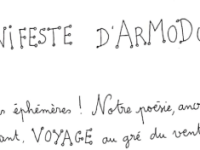 NIFESTE D'ARMODO
s éphémères ! Notre poésie, anc
ant, VOYAGE au gré du vent